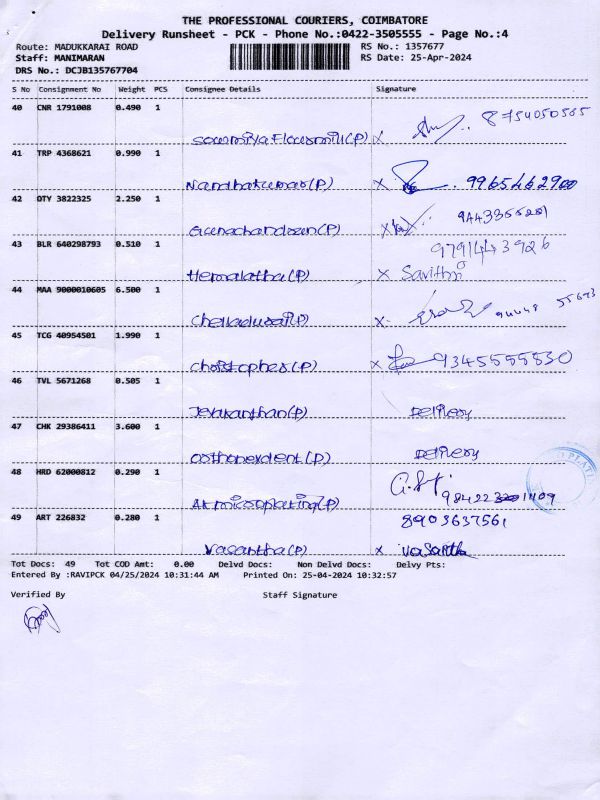 THE PROFESSIONAL COURIERS, COIMBATORE
Delivery Runsheet - PCK - Phone No.:0422-3505555 - Page No.:4
Route: MADUKKARAI ROAD RS No.: 1357677
Staff: MANIMARAN RS Date: 25-Apr-2024
DRS No.: DCJB135767704
S No Consignment No Weight PCS Consignee Details Signature
40 CNR 1791008 0.490 1
8754050565
Sowmiya Flourmill(P) x
41 TRP 4368621 0.990 1
Nandhakumar(P) x 9965462900
42 OTY 3822325 2.250 1
Gunachandran(P) x 9443355201
43 BLR 640298793 0.510 1 9791443926
Hemalatha(P) x Savithri
44 MAA 9000010605 6.500 1
Chelladurai(P) x
45 TCG 40954501 1.990 1
Christopher(P) x 9345555530
46 TVL 5671268 0.505 1
Jeyakanthan(P) Delivery
47 CHK 29386411 3.600 1
Orthonexdent(P) Delivery
48 HRD 62000812 0.290 1
AK microplating(P)
49 ART 226832 0.280 1 8903637561
Vasantha(P) x Vasantha
Tot Docs: 49 Tot COD Amt: 0.00 Delvd Docs: Non Delvd Docs: Delvy Pts:
Entered By :RAVIPCK 04/25/2024 10:31:44 AM Printed On: 25-04-2024 10:32:57
Verified By Staff Signature